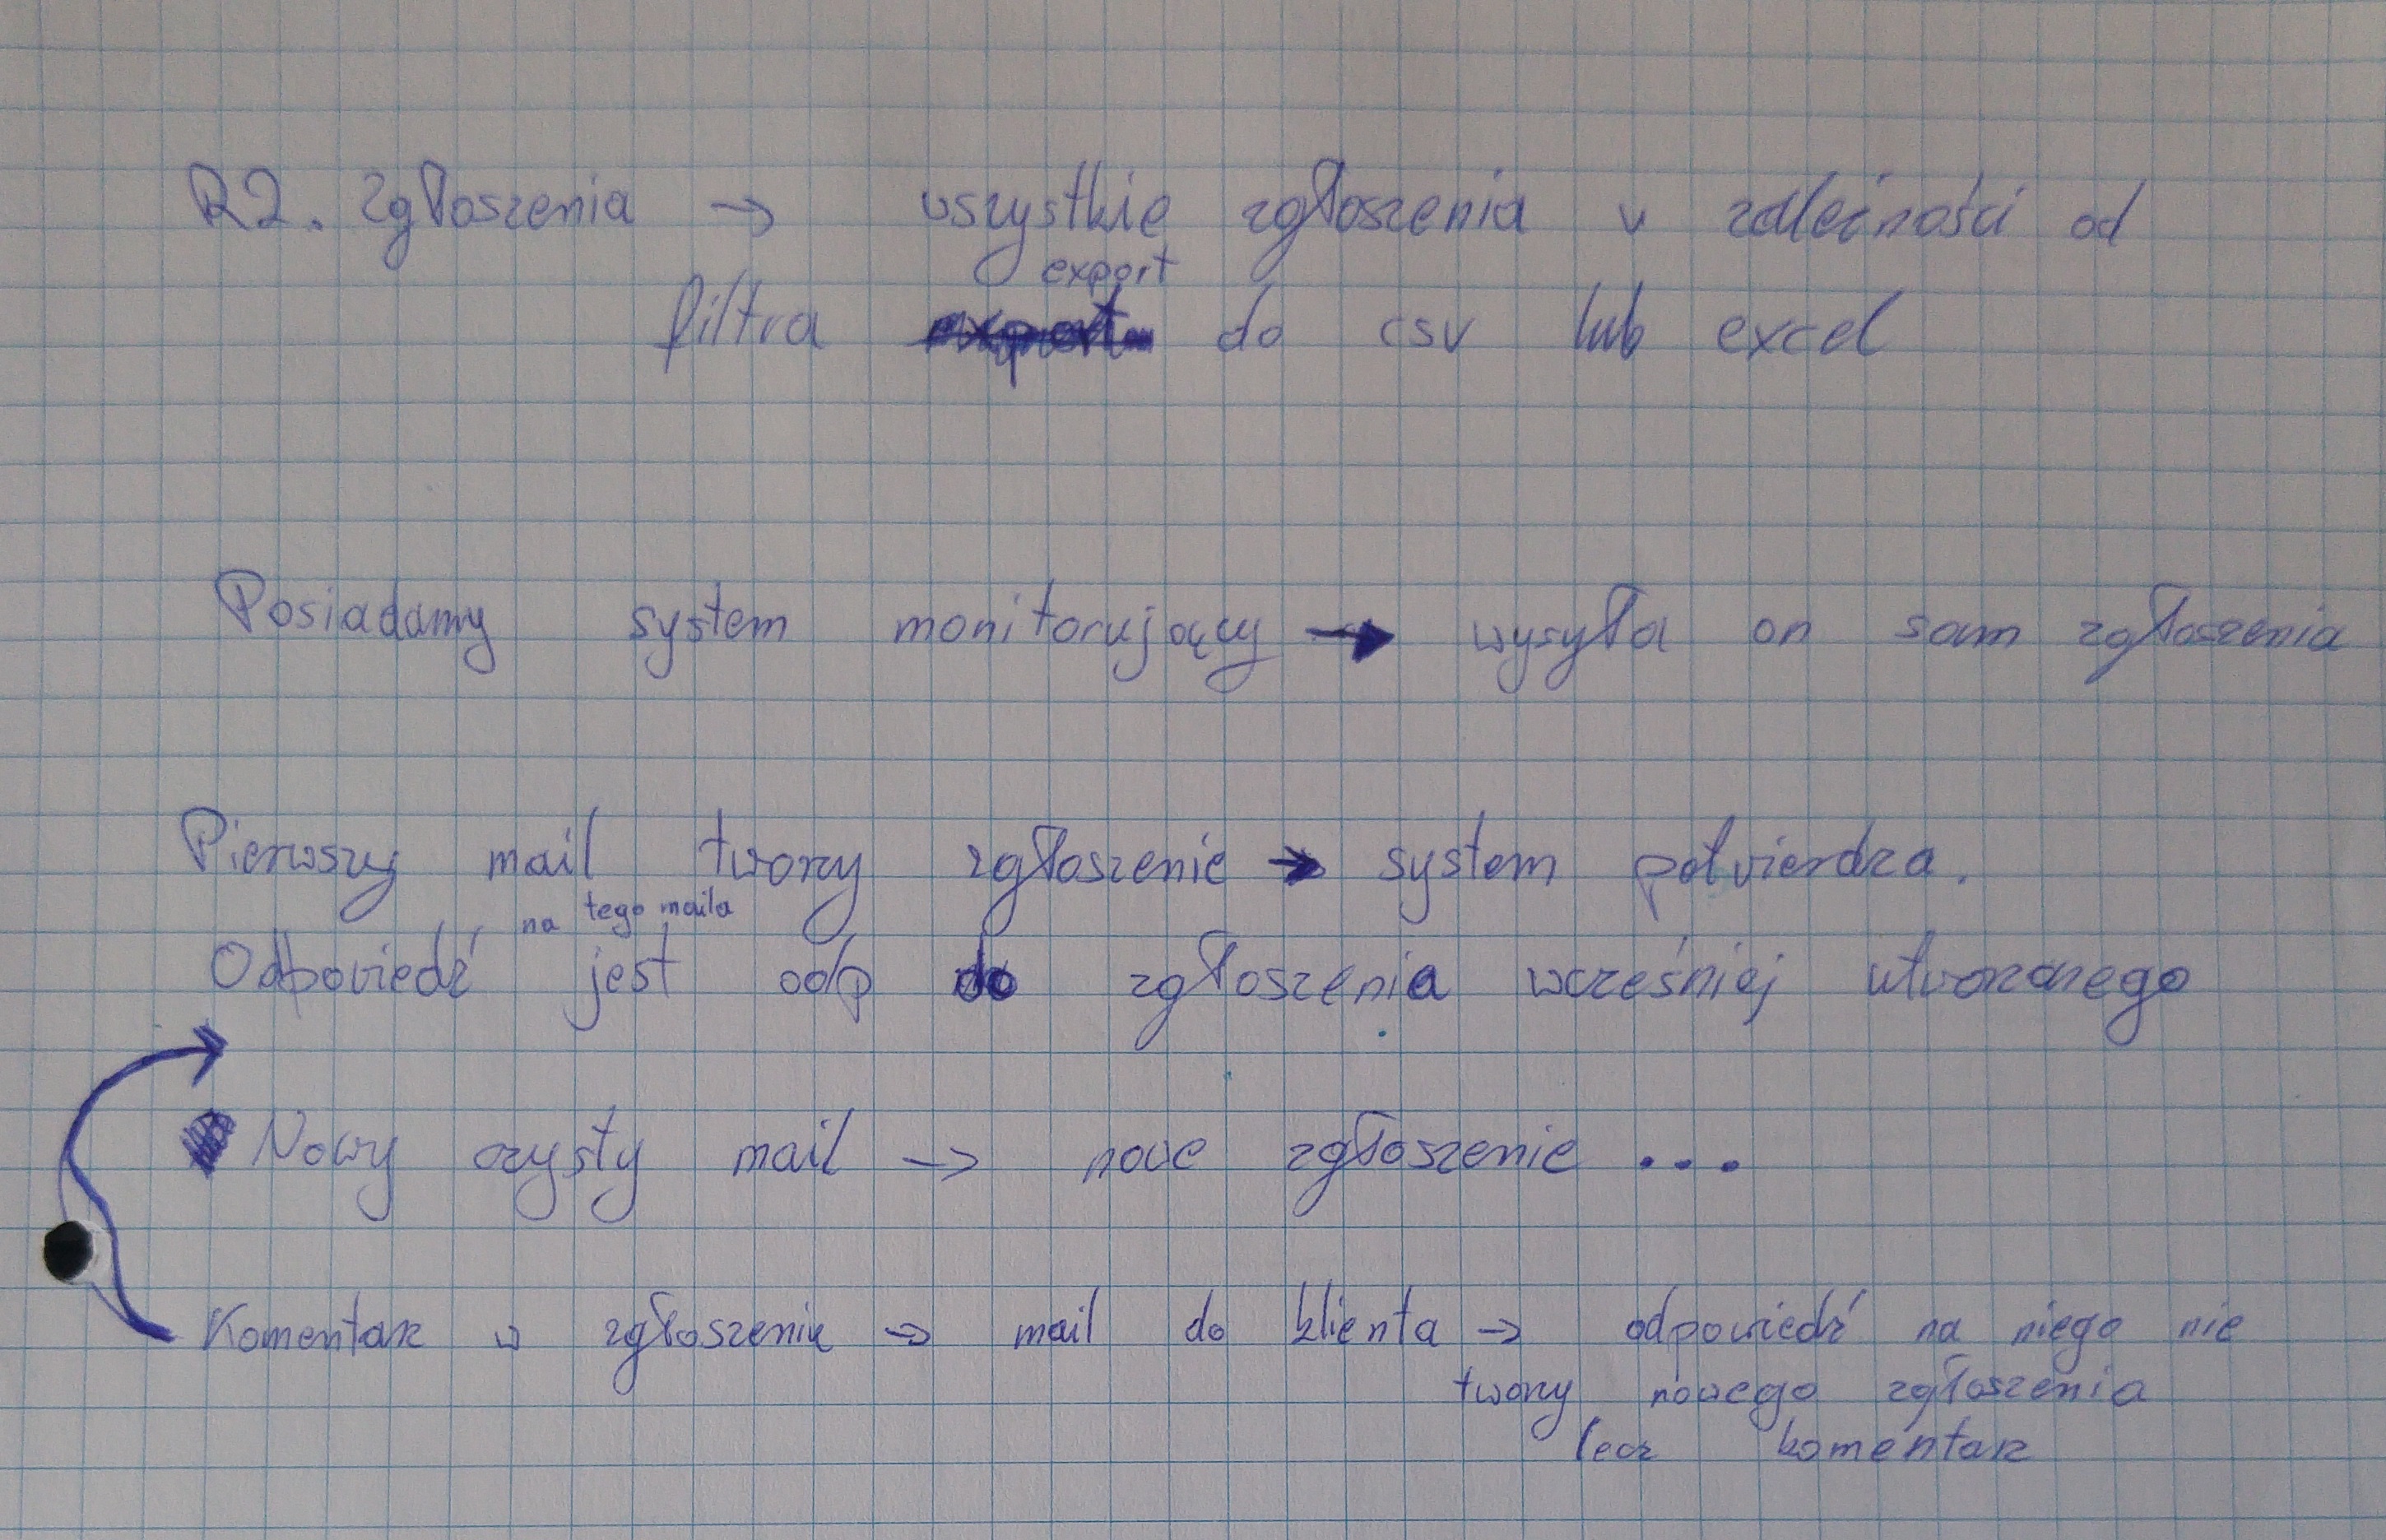 R2. Zgłoszenia → wszystkie zgłoszenia w zależności od
export
filtra do csv lub excel
Posiadamy system monitorujący → wysyła on sam zgłoszenia
Pierwszy mail tworzy zgłoszenie → system potwierdza.
na tego maila
Odpowiedź jest odp do zgłoszenia wcześniej utworzonego
Nowy czysty mail → nowe zgłoszenie ...
Komentarz w zgłoszeniu → mail do klienta → odpowiedź na niego nie
tworzy nowego zgłoszenia
lecz komentarz